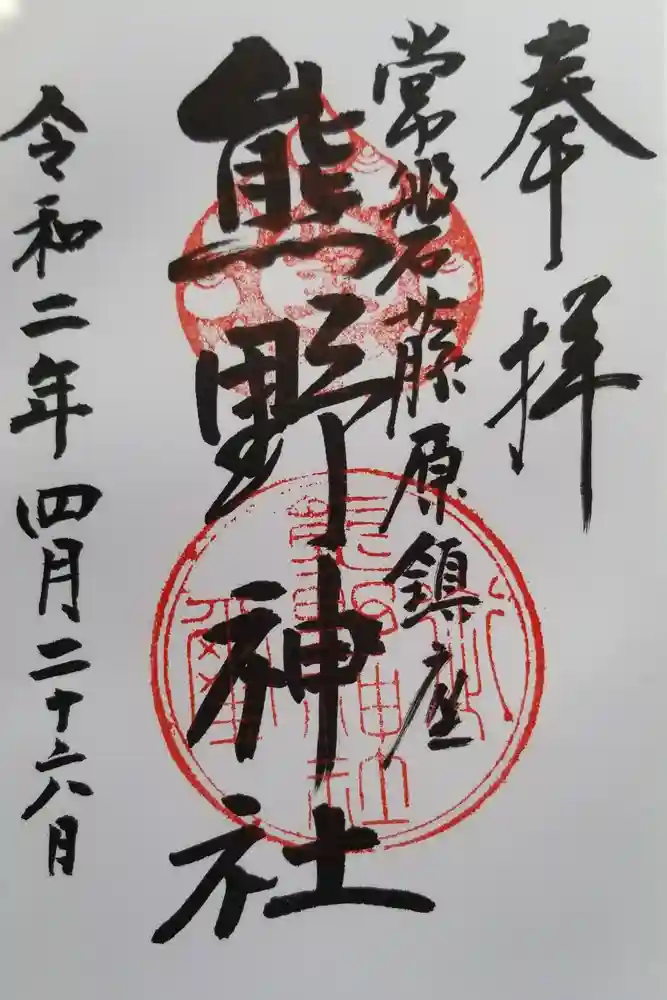 奉拝
常磐藤原鎮座
熊野神社
令和二年四月二十六月